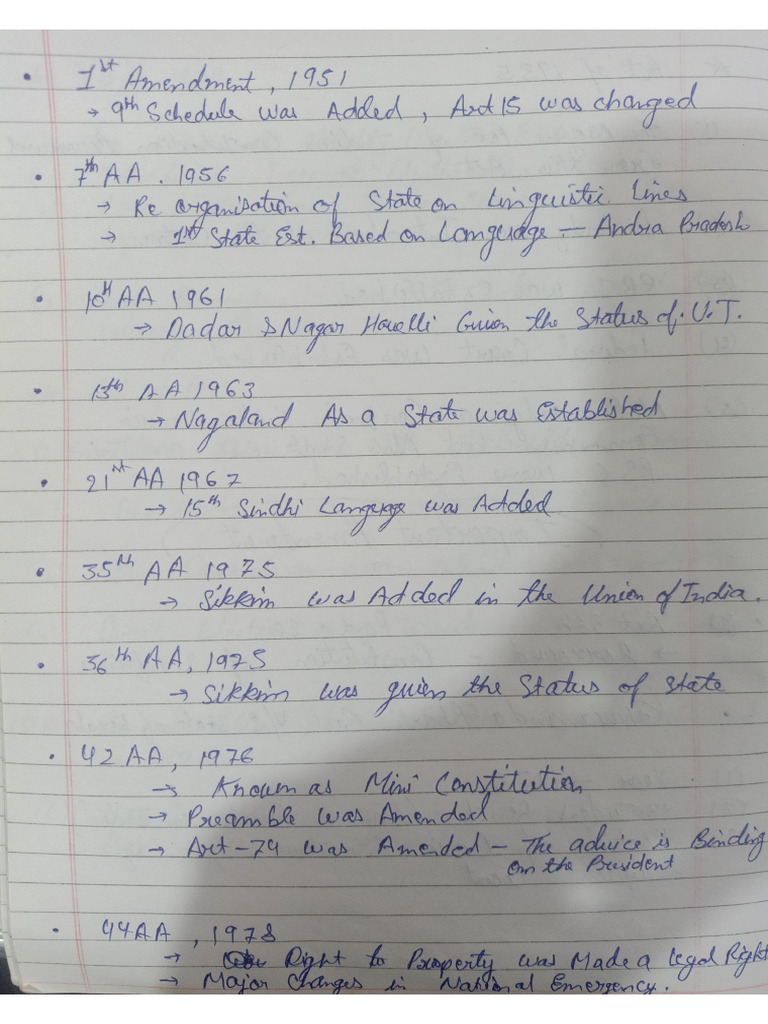 • 1st Amendment, 1951
→ 9th Schedule was Added, Art 15 was changed
• 7th AA. 1956
→ Re organisation of State on Linguistic Lines
→ 1st State Est. Based on Language — Andra Pradesh
• 10th AA 1961
→ Dadar & Nagar Havelli Given the Status of U.T.
• 13th AA 1963
→ Nagaland As a State was Established
• 21st AA 1967
→ 15th Sindhi Language was Added
• 35th AA 1975
→ Sikkim was Added in the Union of India.
• 36th AA, 1975
→ Sikkim was given the Status of State
• 42 AA, 1976
→ Known as Mini Constitution
→ Preamble was Amended
→ Art-74 was Amended - The advice is Binding
on the President
• 44AA, 1978
→ Right to Property was Made a Legal Right
→ Major Changes in National Emergency.